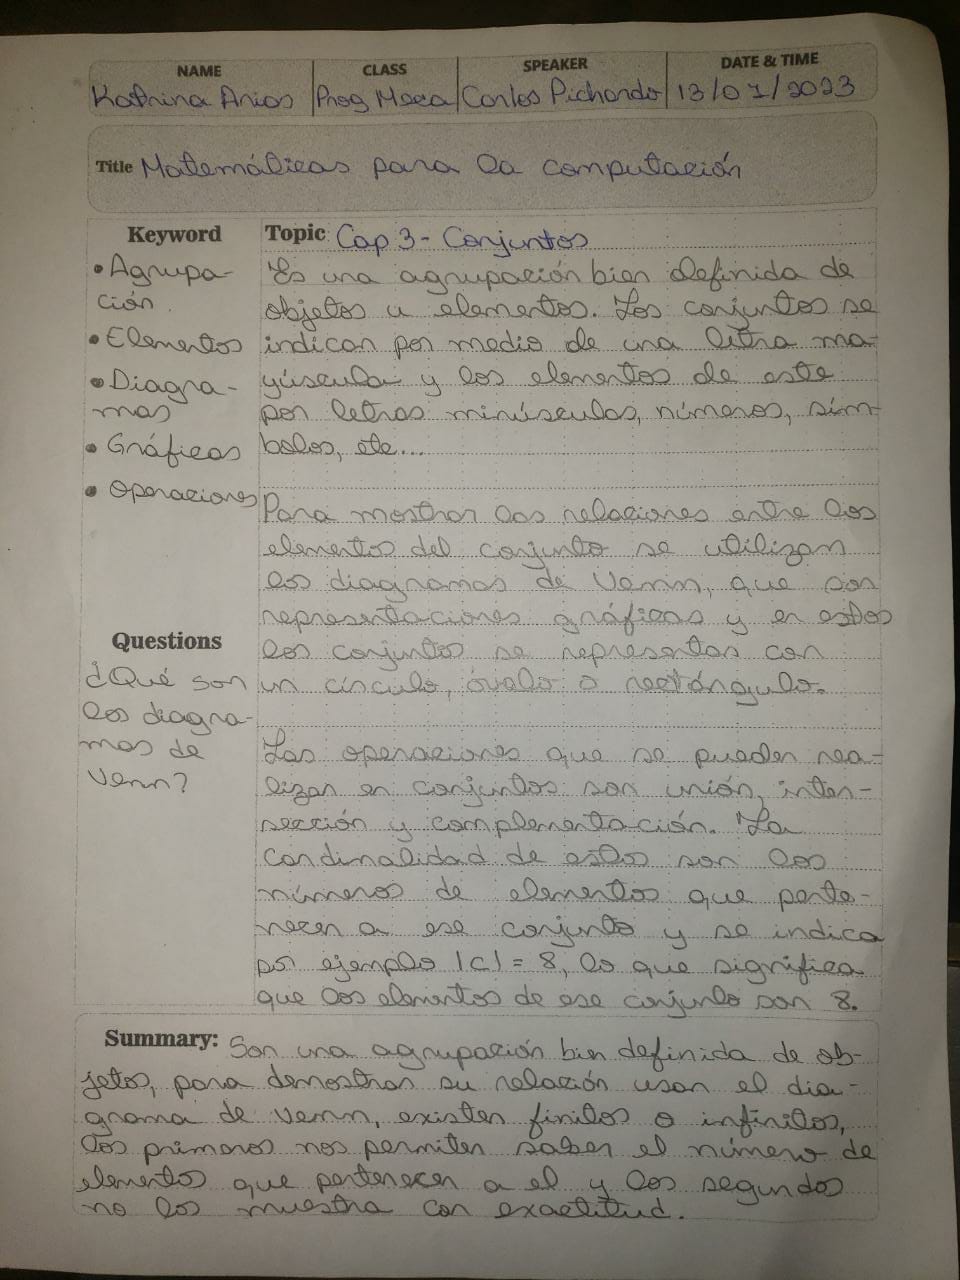 NAME CLASS SPEAKER DATE & TIME
Katrina Arias Prog Meca Carlos Pichardo 13/01/2023
Title Matemáticas para la computación
Keyword
• Agrupa-
ción
• Elementos
• Diagra-
mas
• Gráficas
• Operaciones
Questions
¿Qué son
los diagra-
mas de
Venn?
Topic: Cap 3 - Conjuntos
Es una agrupación bien definida de
objetos u elementos. Los conjuntos se
indican por medio de una letra ma-
yúscula y los elementos de este
por letras minúsculas, números, sím-
bolos, etc...
Para mostrar las relaciones entre los
elementos del conjunto se utilizan
los diagramas de Venn, que son
representaciones gráficas y en estos
los conjuntos se representan con
un círculo, óvalo o rectángulo.
Las operaciones que se pueden rea-
lizar en conjuntos son unión, inter-
sección y complementación. La
cardinalidad de estos son los
números de elementos que perte-
necen a ese conjunto y se indica
por ejemplo |C| = 8, lo que significa
que los elementos de ese conjunto son 8.
Summary: Son una agrupación bien definida de ob-
jetos, para demostrar su relación usan el dia-
grama de Venn, existen finitos o infinitos,
los primeros nos permiten saber el número de
elementos que pertenecen a el y los segundos
no los muestra con exactitud.